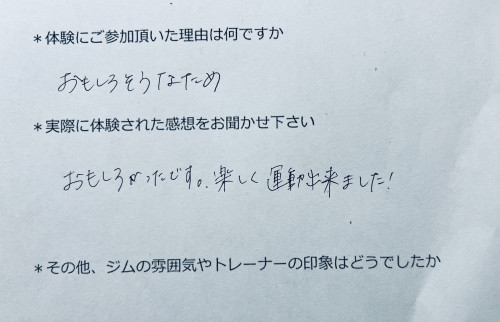 *体験にご参加頂いた理由は何ですか
おもしろそうなため
*実際に体験された感想をお聞かせ下さい
おもしろかったです。楽しく運動出来ました!
*その他、ジムの雰囲気やトレーナーの印象はどうでしたか